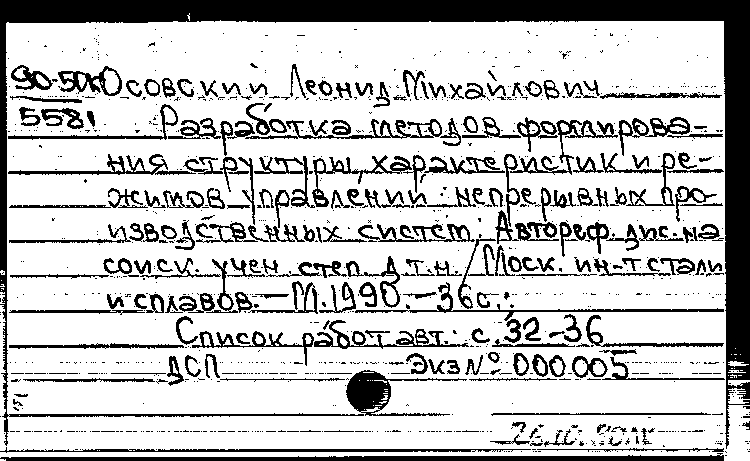 90-50к Осовский Леонид Михайлович
5581 Разработка методов формирова-
ния структуры, характеристик и ре-
жимов управлений непрерывных про-
изводственных систем: Автореф. дис. на
соиск. учен. степ. д.т.н. Моск. ин-т стали
и сплавов. — М. 1990. — 36с.:
Список работ авт.: с. 32-36
ДСП Экз № 000005
26.10.